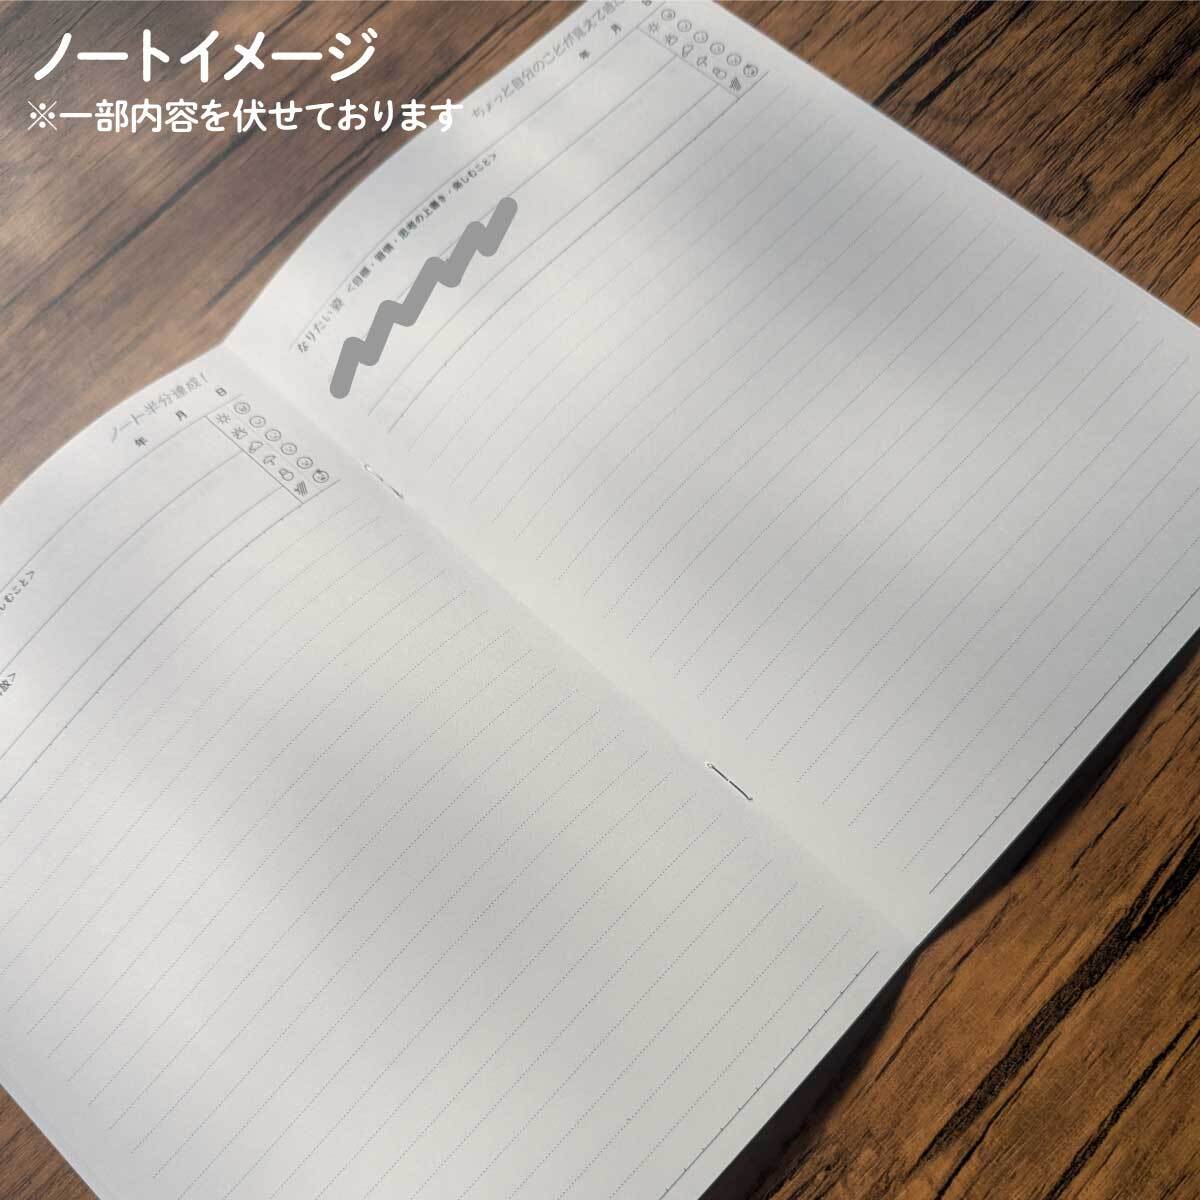 ノートイメージ
※一部内容を伏せております
ノート半分達成！
年 月 日
しむこと>
放>
ちょっと自分のことが見えて
年 月 日
なりたい姿 <目標・習慣・思考の上書き・楽しむこと>